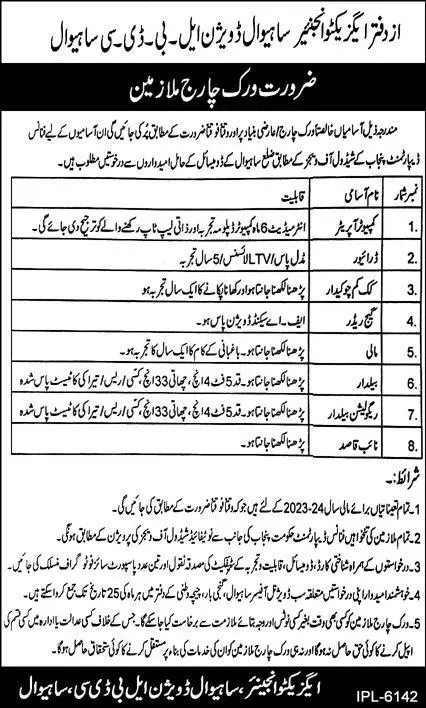 از دفتر ایگزیکٹو انجنیئر ساہیوال ڈویژن ایل۔بی۔ڈی۔سی ساہیوال
ضرورت ورک چارج ملازمین
مندرجہ ذیل آسامیاں خالصتاً ورک چارج/عارضی بنیاد پر اور وقتاً فوقتاً ضرورت کے مطابق پُر کی جائیں گی ان آسامیوں کے لیے فنانس
ڈیپارٹمنٹ پنجاب کے شیڈول آف ویجز کے مطابق ضلع ساہیوال کے ڈومیسائل کے حامل امیدواروں سے درخواستیں مطلوب ہیں۔
نمبر شمار نام آسامی قابلیت
1. کمپیوٹر آپریٹر انٹرمیڈیٹ 6 ماہ کمپیوٹر ڈپلومہ تجربہ اور ذاتی لیپ ٹاپ رکھنے والے کو ترجیح دی جائے گی۔
2. ڈرائیور مڈل پاس/LTV لائسنس/5 سال تجربہ
3. کک کم چوکیدار پڑھنا لکھنا جانتا ہو اور کھانا پکانے کا ایک سال تجربہ ہو
4. گیج ریڈر ایف۔اے سیکنڈ ڈویژن پاس ہو۔
5. مالی پڑھنا لکھنا جانتا ہو۔ باغبانی کے کام کا ایک سال کا تجربہ ہو۔
6. بیلدار پڑھنا لکھنا جانتا ہو۔ قد 5 فٹ 4 انچ، چھاتی 33 انچ، کسّی/ریس/تیراکی کا ٹیسٹ پاس شدہ
7. ریگولیشن بیلدار پڑھنا لکھنا جانتا ہو۔ قد 5 فٹ 4 انچ، چھاتی 33 انچ، کسّی/ریس/تیراکی کا ٹیسٹ پاس شدہ
8. نائب قاصد پڑھنا لکھنا جانتا ہو۔
شرائط:۔
1۔ تمام تعیناتیاں برائے مالی سال 24-2023 کے لئے ہیں جو کہ وقتاً فوقتاً ضرورت کے مطابق کی جائیں گی۔
2۔ تمام ملازمین کی تنخواہیں فنانس ڈیپارٹمنٹ حکومت پنجاب کی جانب سے نوٹیفائیڈ شیڈول آف ویجز کی پرویژن کے مطابق ہونگی۔
3۔ درخواستوں کے ہمراہ شناختی کارڈ، ڈومیسائل، قابلیت و تجربہ کے سرٹیفکیٹ کی مصدقہ نقول اور تین عدد پاسپورٹ سائز فوٹو گراف منسلک کی جائیں۔
4۔ خواہشمند امیدوار اپنی درخواستیں متعلقہ سب ڈویژنل آفیسر ساہیوال، گنجی بار، چیچہ وطنی کے دفتر میں ہر ماہ کی 25 تاریخ تک جمع کروا سکتے ہیں۔
5۔ ورک چارج ملازمین کو کسی بھی وقت بغیر کسی نوٹس اور وجہ بتائے ملازمت سے برخاست کیا جا سکے گا۔ جس کے خلاف کسی عدالت یا ادارہ میں کسی قسم کی
اپیل کرنے کا کوئی حق حاصل نہ ہوگا اور نہ ہی ورک چارج ملازمین کو ان کی خدمات کی بناء پر مستقل کرنے کا کوئی استحقاق حاصل ہوگا۔
ایگزیکٹو انجینئر، ساہیوال ڈویژن ایل بی ڈی سی، ساہیوال
IPL-6142